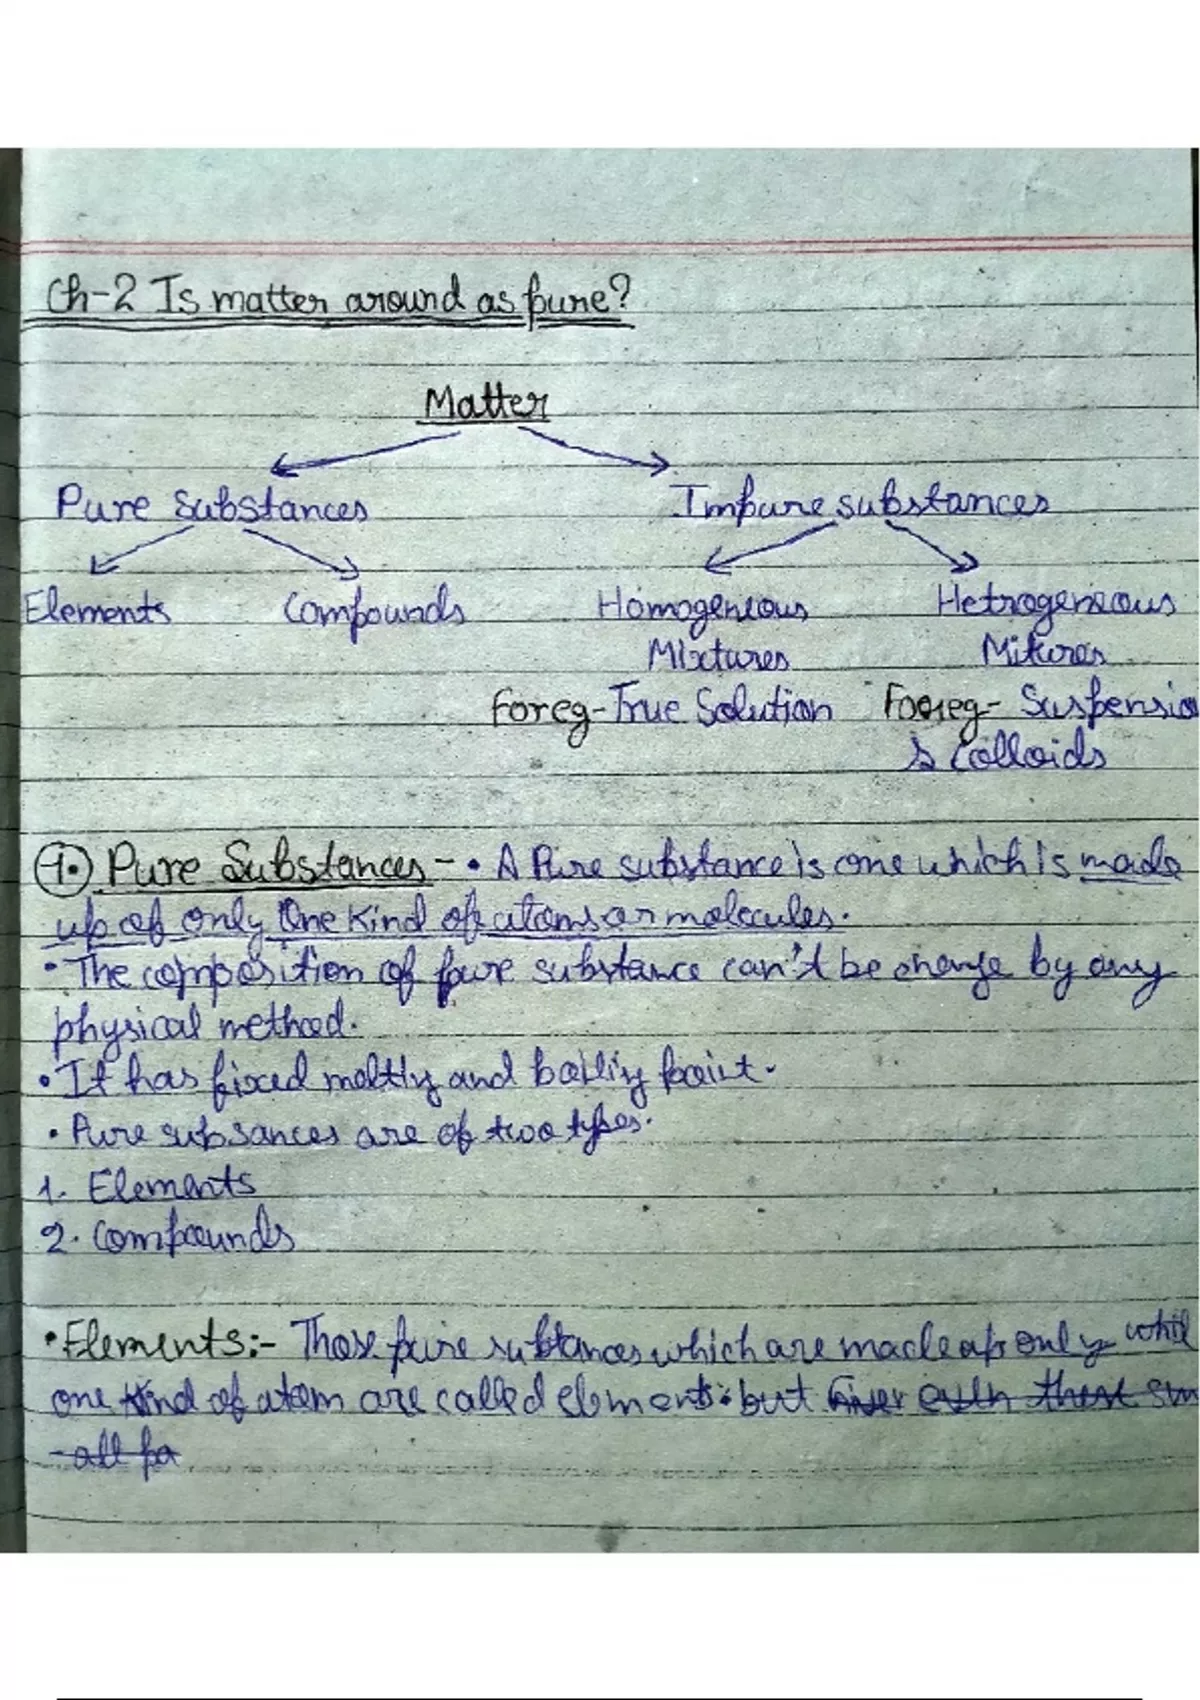 Ch-2 Is matter around as pure?
Matter
Pure Substances Impure substances
Elements Compounds Homogenious Hetrogenious
Mixtures Mitures
Foreg-True Solution Foreg- Suspensio
& Colloids
1. Pure Substances - • A Pure substance is one which is made
up of only One Kind of atoms or molecules.
• The composition of pure substance can't be change by any
physical method.
• It has fixed meltly and boiling point.
• Pure subsances are of two types.
1. Elements
2. Compounds
• Elements:- Those pure substances which are made up only
one kind of atom are called elements. but even these sm
-all pa